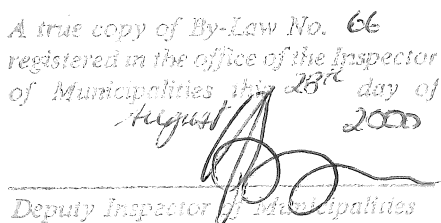 A true copy of By-Law No. 66
registered in the office of the Inspector
of Municipalities this 28th day of
August 2000
Deputy Inspector of Municipalities